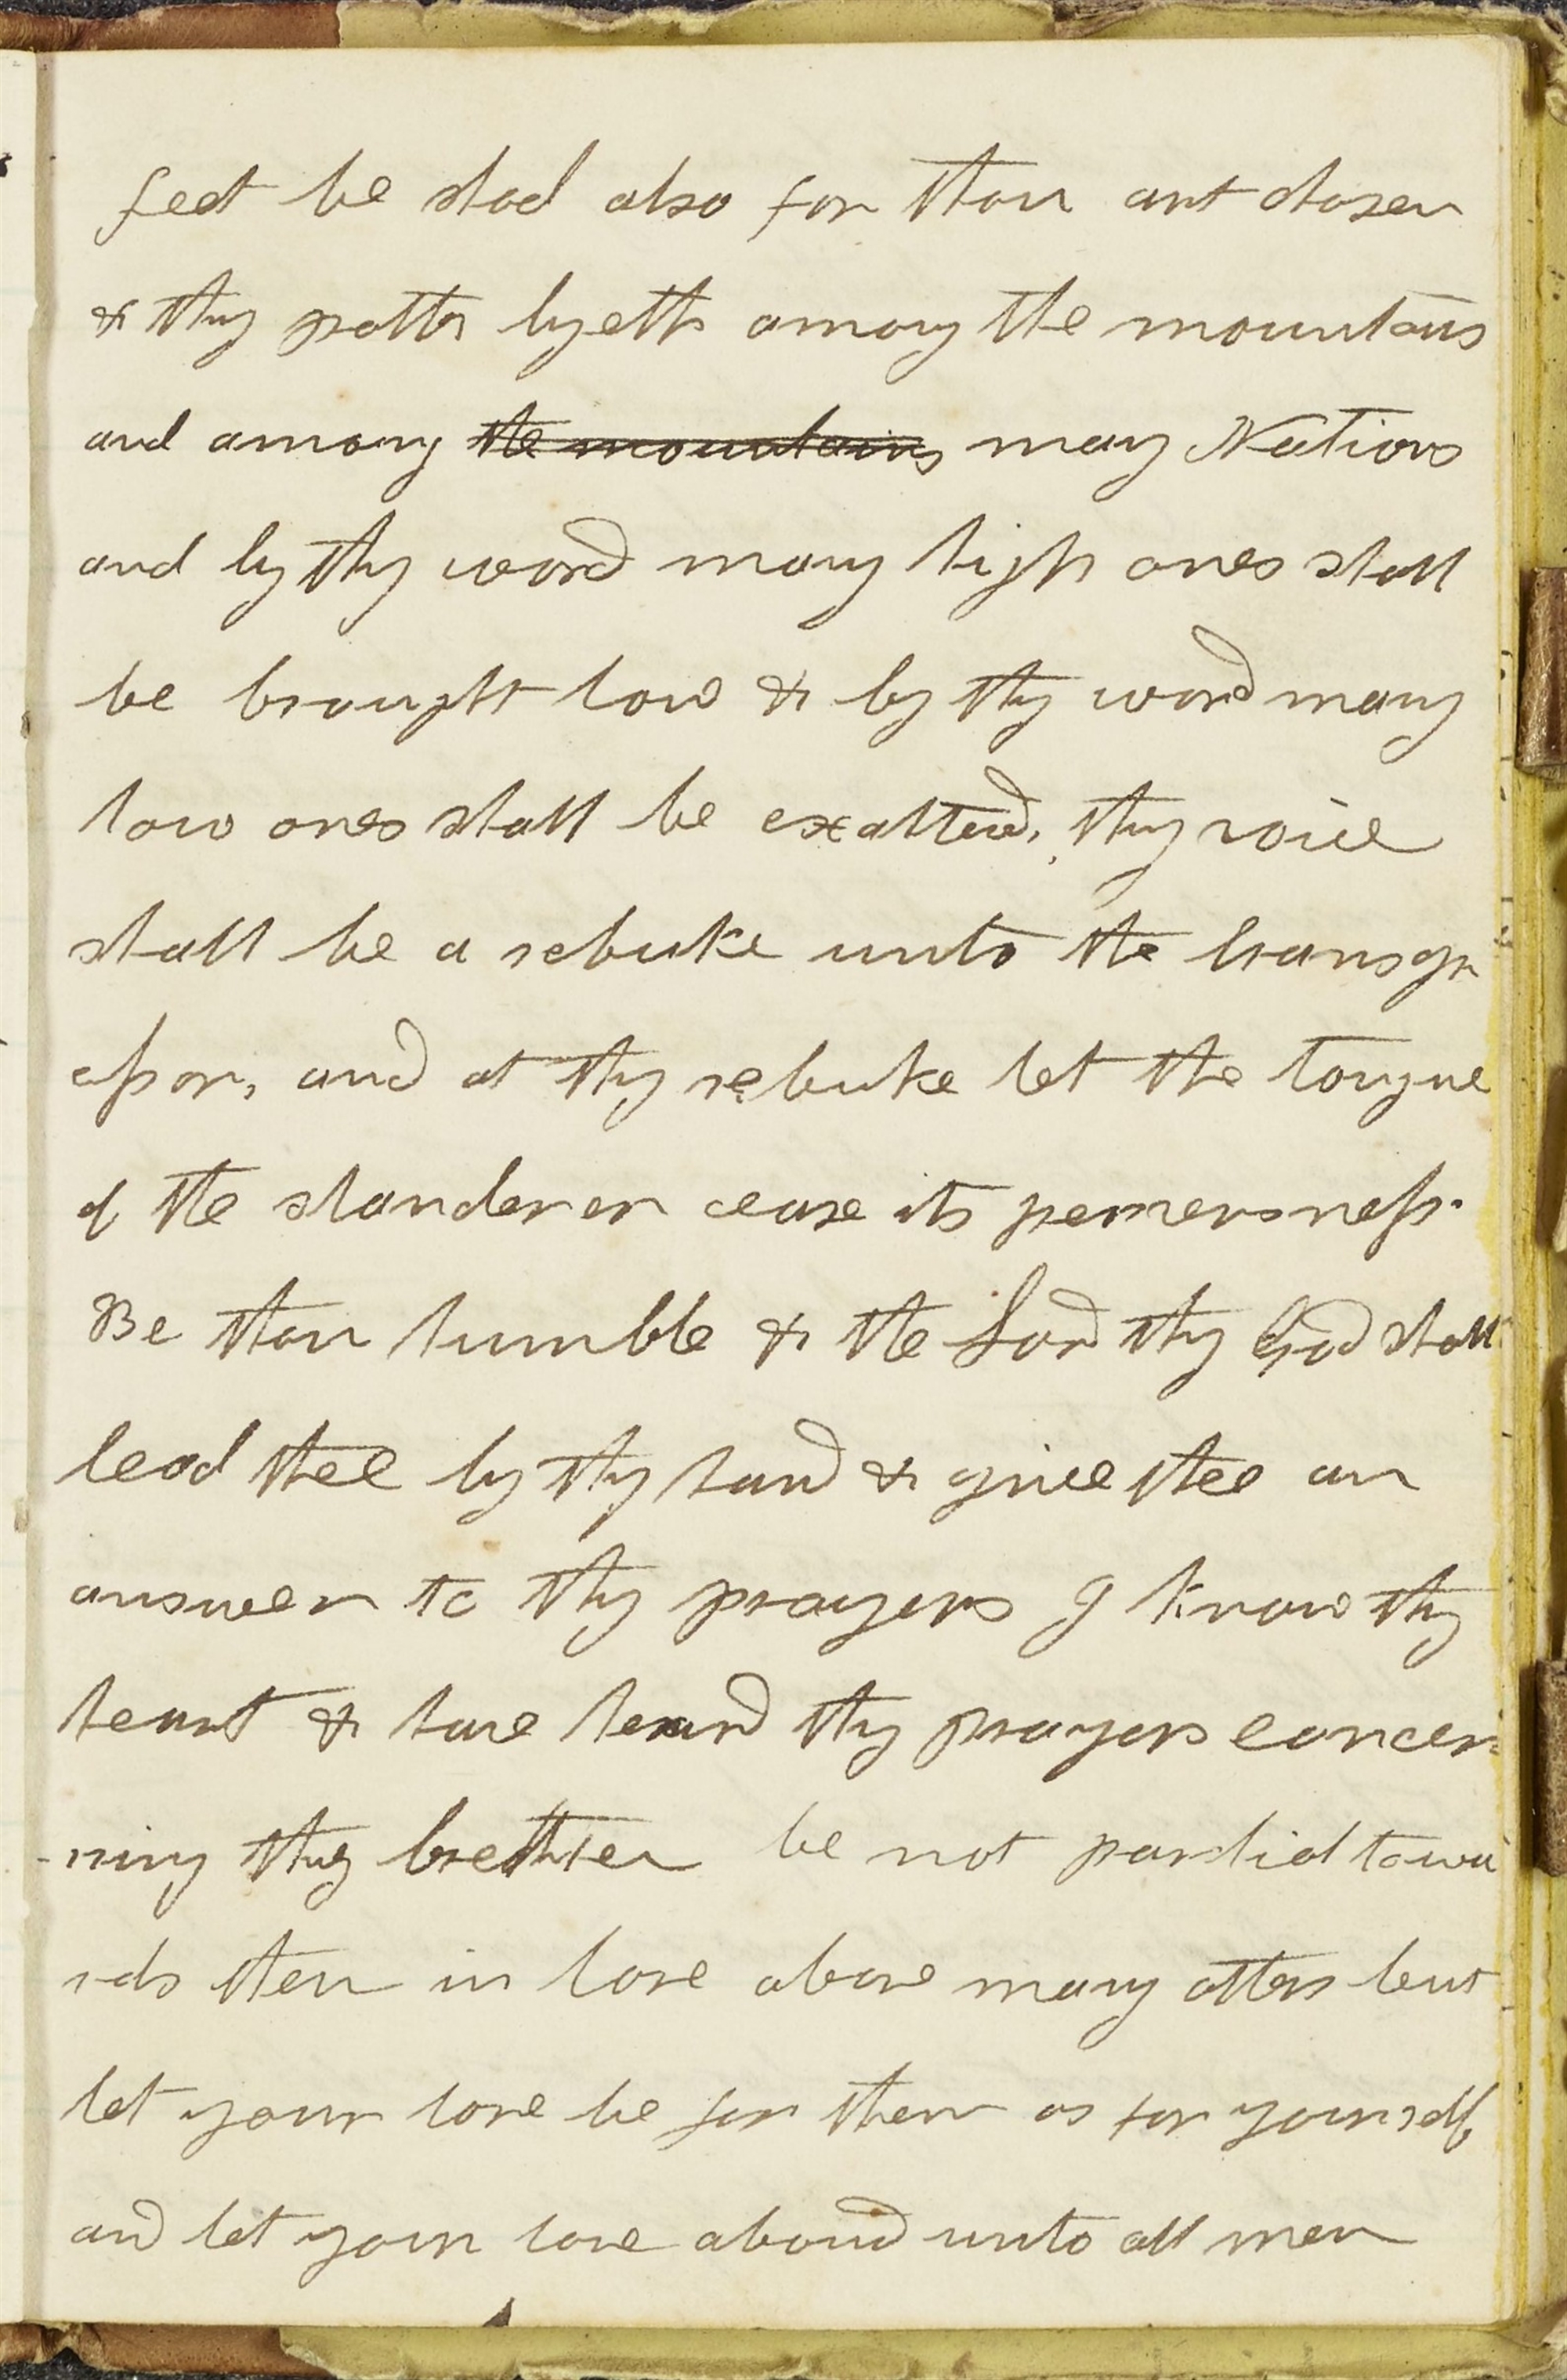 feet be shod also for thou art chosen
& thy path lyeth among the mountains
and among the mountains many Nations
and by thy word many high ones shall
be brought low & by thy word many
low ones shall be exalted, thy voice
shall be a rebuke unto the transgr
essor, and at thy rebuke let the tongue
of the slanderer cease its perverseness.
Be thou humble & the Lord thy God shall
lead thee by thy hand & give thee an
answer to thy prayers I know thy
heart & have heard thy prayers concer=
-ning thy brethren be not partial towa
rds them in love above many others but
let your love be for them as for yourself,
and let your love abound unto all men